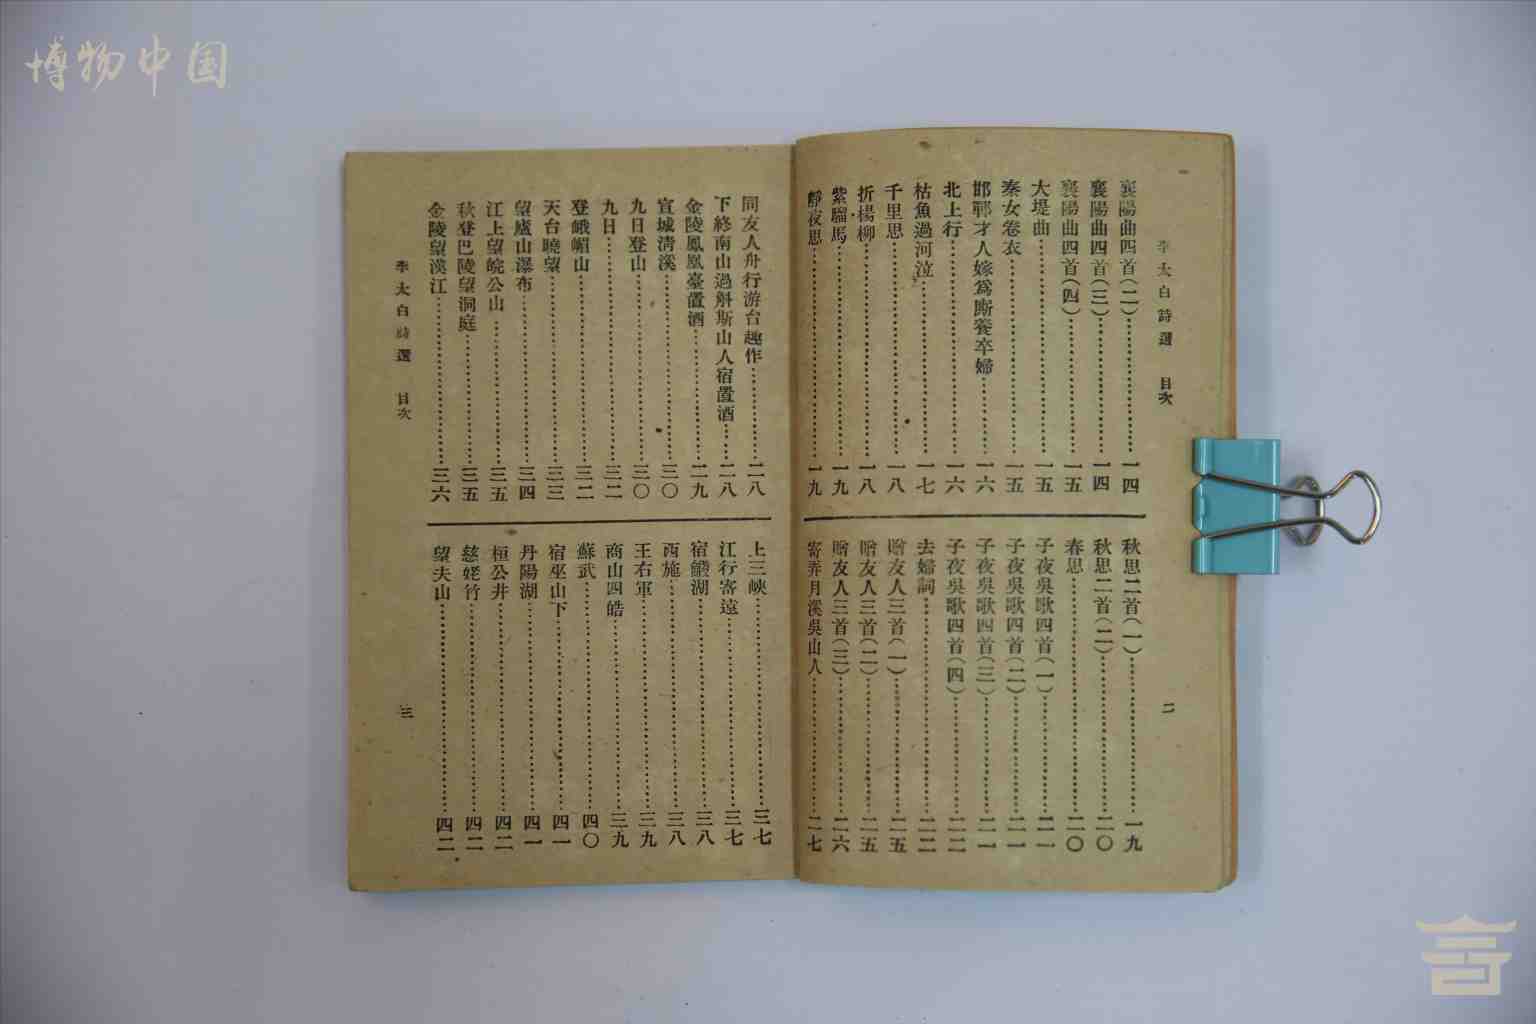 博物中国
李太白詩選 目次
二
襄陽曲四首(二)……一四
襄陽曲四首(三)……一四
襄陽曲四首(四)……一五
大堤曲……一五
秦女卷衣……一五
邯鄲才人嫁爲厮養卒婦……一六
北上行……一六
枯魚過河泣……一七
千里思……一八
折楊柳……一八
紫騮馬……一九
靜夜思……一九
秋思二首(一)……一九
秋思二首(二)……二〇
春思……二〇
子夜吳歌四首(一)……二一
子夜吳歌四首(二)……二一
子夜吳歌四首(三)……二一
子夜吳歌四首(四)……二二
去婦詞……二二
贈友人三首(一)……二五
贈友人三首(二)……二五
贈友人三首(三)……二六
寄弄月溪吳山人……二七
同友人舟行游台越作……二八
下終南山過斛斯山人宿置酒……二八
金陵鳳凰臺置酒……二九
宣城清溪……三〇
九日登山……三〇
九日……三二
登峨嵋山……三二
天台曉望……三三
望廬山瀑布……三四
江上望皖公山……三五
秋登巴陵望洞庭……三五
金陵望漢江……三六
上三峽……三七
江行寄遠……三七
宿鰕湖……三八
西施……三八
王右軍……三九
商山四皓……三九
蘇武……四〇
宿巫山下……四一
丹陽湖……四一
桓公井……四二
慈姥竹……四二
望夫山……四二
李太白詩選 目次
三